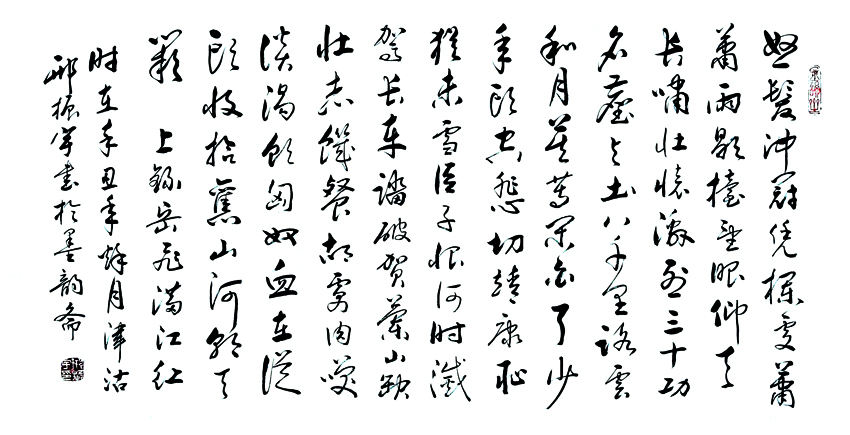 怒髮沖冠凭欄處蕭
蕭雨歇擡望眼仰天
长嘯壯懷激烈三十功
名塵与土八千里路雲
和月莫等闲白了少
年头空悲切靖康耻
猶未雪臣子恨何时滅
驾长车踏破賀蘭山缺
壮志饑餐胡虜肉笑
談渴飲匈奴血待從
头收拾舊山河朝天
闕 上録岳飛滿江红
时在辛丑年月津沽
邢振军書於墨韵斋